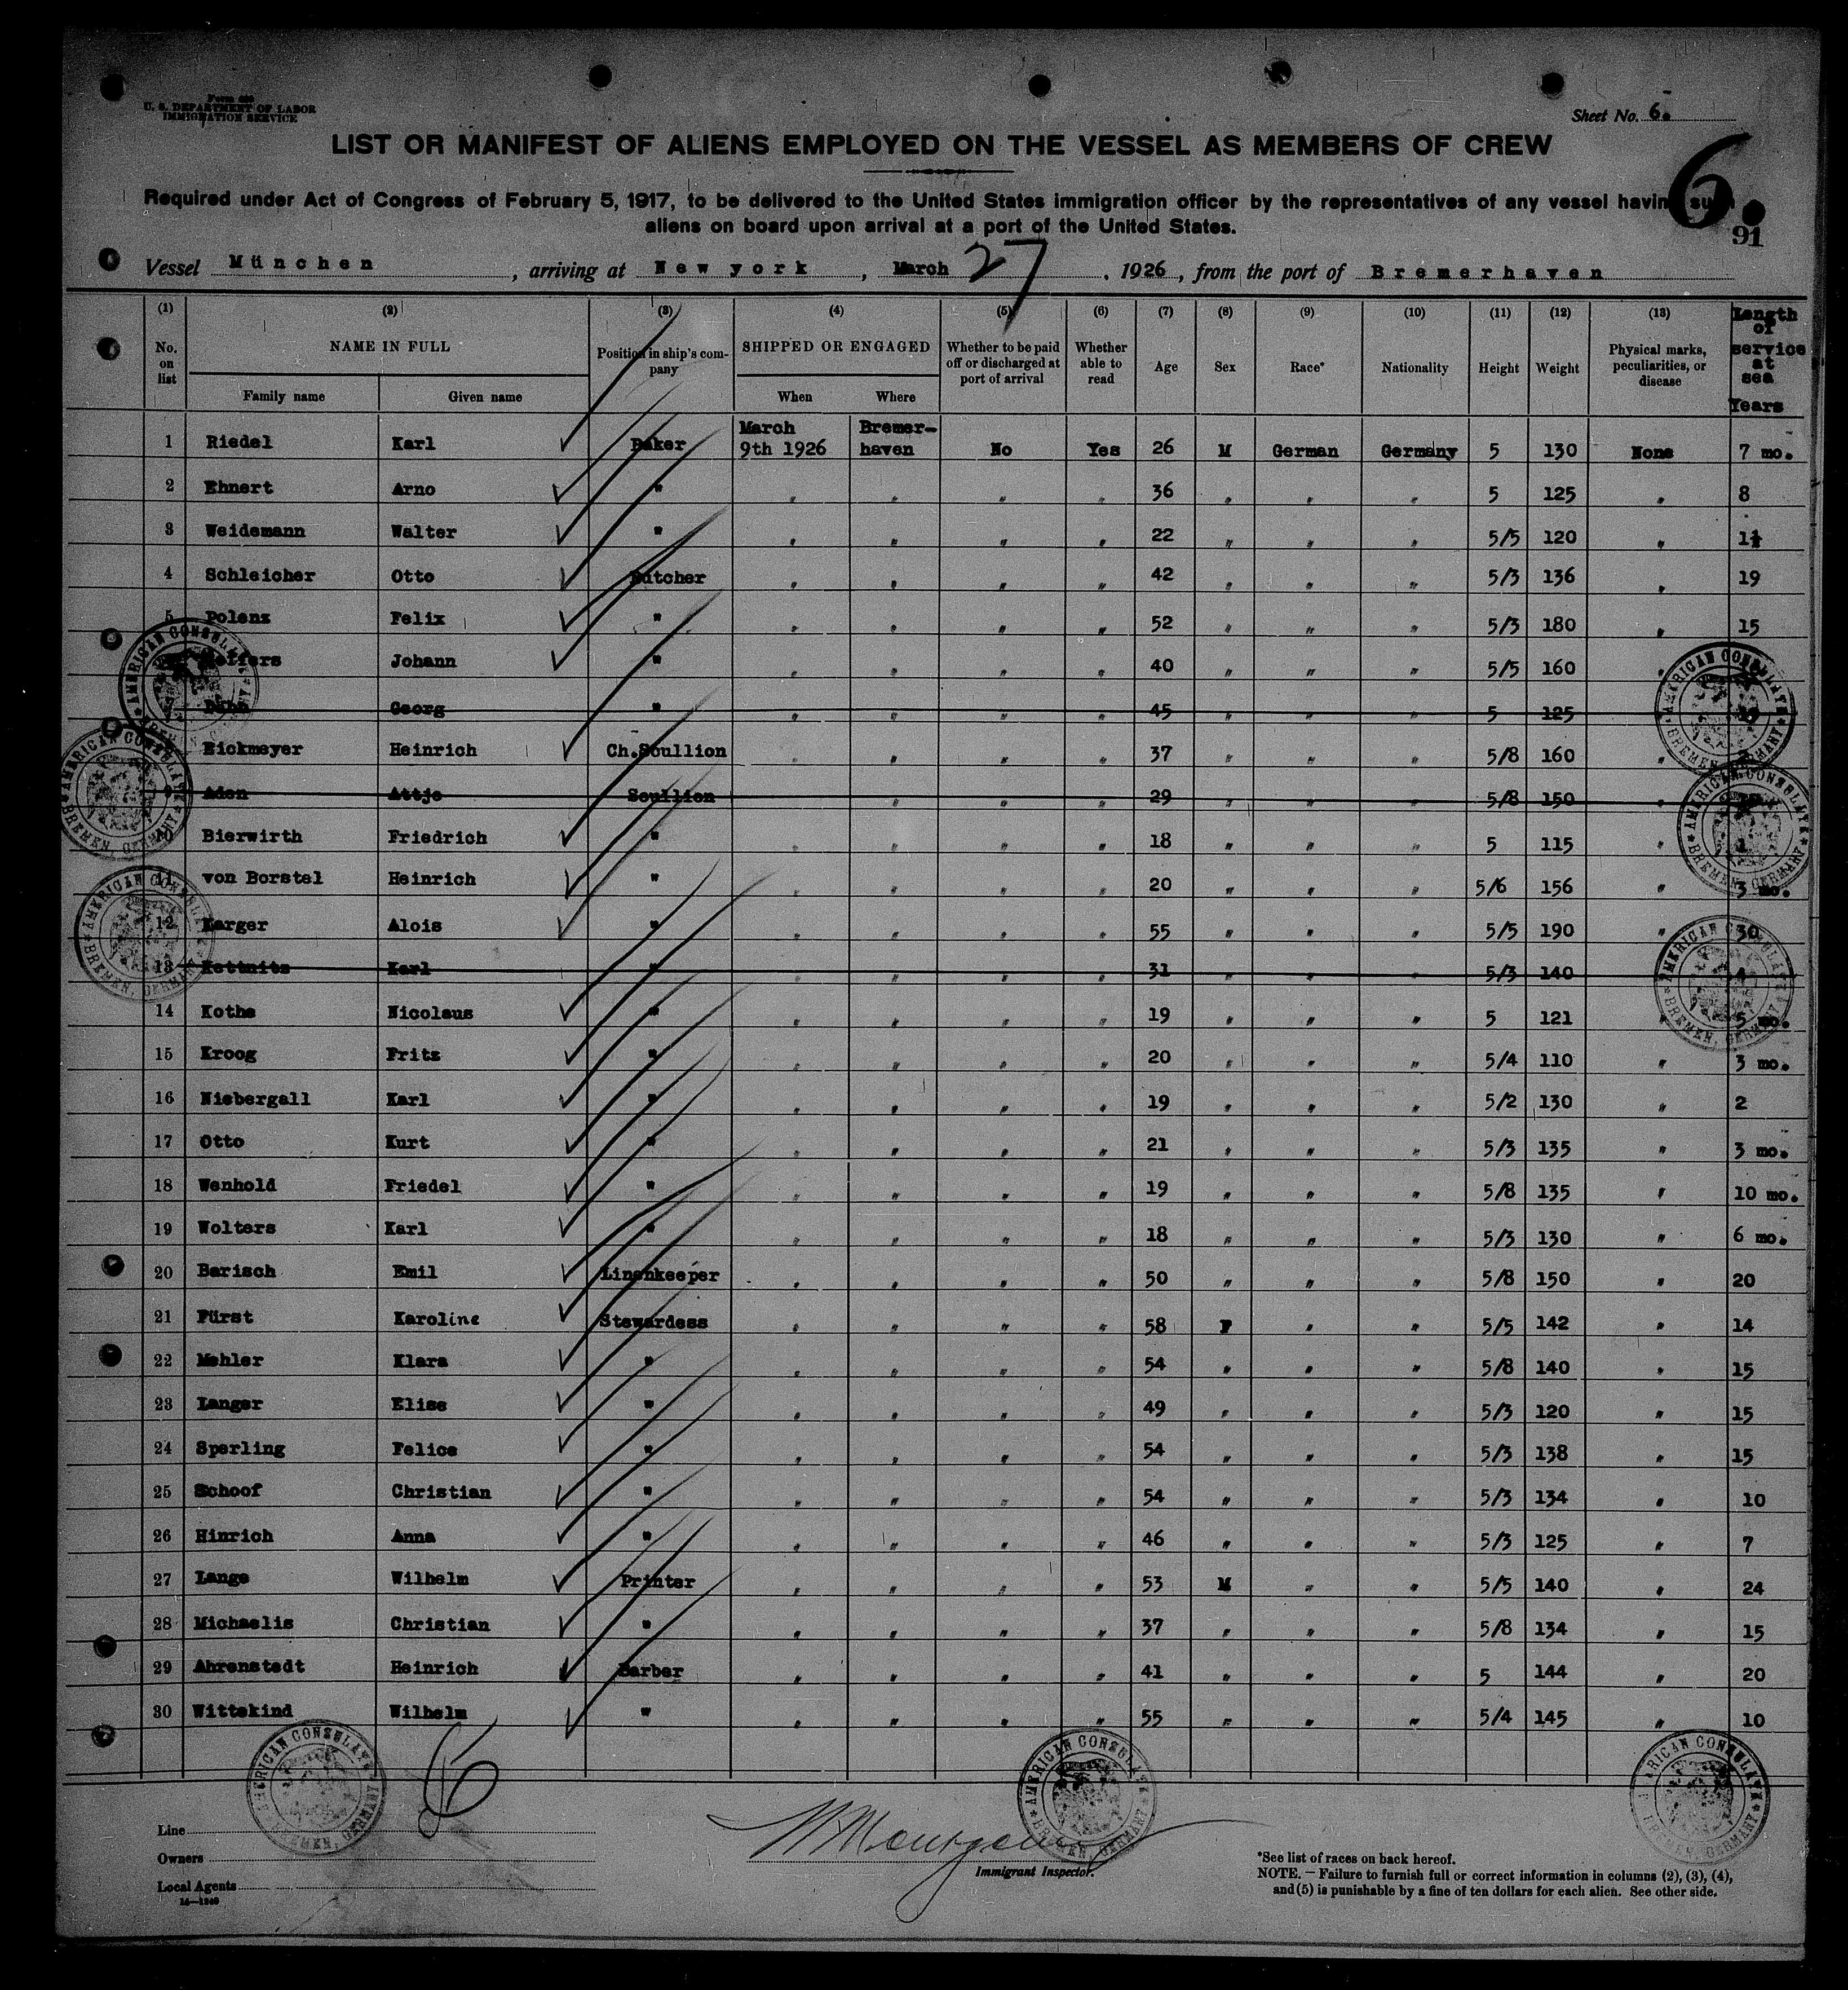 Form 689
U. S. DEPARTMENT OF LABOR
IMMIGRATION SERVICE
Sheet No. 6.
LIST OR MANIFEST OF ALIENS EMPLOYED ON THE VESSEL AS MEMBERS OF CREW
6.
Required under Act of Congress of February 5, 1917, to be delivered to the United States immigration officer by the representatives of any vessel having such
aliens on board upon arrival at a port of the United States.
91
Vessel München, arriving at New york, March 27, 1926, from the port of Bremerhaven
(1) (2) (3) (4) (5) (6) (7) (8) (9) (10) (11) (12) (13) Length of service at sea Years
No. on list NAME IN FULL Position in ship's company SHIPPED OR ENGAGED Whether to be paid off or discharged at port of arrival Whether able to read Age Sex Race* Nationality Height Weight Physical marks, peculiarities, or disease
Family name Given name When Where
1 Riedel Karl Baker March 9th 1926 Bremer-haven No Yes 26 M German Germany 5 130 None 7 mo.
2 Ehnert Arno " " " " " 36 " " " 5 125 " 8
3 Weidemann Walter " " " " " 22 " " " 5/5 120 " 1½
4 Schleicher Otto Butcher " " " " 42 " " " 5/3 136 " 19
5 Polenz Felix " " " " " 52 " " " 5/3 180 " 15
Johann " " " " " 40 " " " 5/5 160 "
Georg " " " " " 45 " " " 5 125
Eickmeyer Heinrich Ch.Scullion " " " " 37 " " " 5/8 160 "
Aden Attje Scullion " " " 29 " " " 5/8 150 "
10 Bierwirth Friedrich " " " " " 18 " " " 5 115 " 1
11 von Borstel Heinrich " " " " " 20 " " " 5/6 156 " 3 mo.
12 Karger Alois " " " " " 55 " " " 5/5 190 " 30
13 Kettnitz Karl " " " " " 31 " " " 5/3 140 " 4
14 Kothe Nicolaus " " " " " 19 " " " 5 121 " 5 mo.
15 Kroog Fritz " " " " " 20 " " " 5/4 110 " 3 mo.
16 Niebergall Karl " " " " " 19 " " " 5/2 130 " 2
17 Otto Kurt " " " " " 21 " " " 5/3 135 " 3 mo.
18 Wenhold Friedel " " " " " 19 " " " 5/8 135 " 10 mo.
19 Wolters Karl " " " " " 18 " " " 5/3 130 " 6 mo.
20 Barisch Emil Linenkeeper " " " " 50 " " " 5/8 150 " 20
21 Fürst Karoline Stewardess " " " " 58 F " " 5/5 142 " 14
22 Mehler Klara " " " " " 54 " " " 5/8 140 " 15
23 Langer Elise " " " " " 49 " " " 5/3 120 " 15
24 Sperling Felice " " " " " 54 " " " 5/3 138 " 15
25 Schoof Christian " " " " " 54 " " " 5/3 134 " 10
26 Hinrich Anna " " " " " 46 " " " 5/3 125 " 7
27 Lange Wilhelm Printer " " " " 53 M " " 5/5 140 " 24
28 Michaelis Christian " " " " " 37 " " " 5/8 134 " 15
29 Ahrenstedt Heinrich Barber " " " " 41 " " " 5 144 " 20
30 Wittekind Wilhelm " " " " " 55 " " " 5/4 145 " 10
AMERICAN CONSULATE BREMEN, GERMANY
AMERICAN CONSULATE BREMEN, GERMANY
AMERICAN CONSULATE BREMEN, GERMANY
AMERICAN CONSULATE BREMEN, GERMANY
AMERICAN CONSULATE BREMEN, GERMANY
AMERICAN CONSULATE BREMEN, GERMANY
AMERICAN CONSULATE BREMEN, GERMANY
AMERICAN CONSULATE BREMEN, GERMANY
AMERICAN CONSULATE BREMEN, GERMANY
Line
Owners
Local Agents
14—1240
Immigrant Inspector.
*See list of races on back hereof.
NOTE. — Failure to furnish full or correct information in columns (2), (3), (4),
and (5) is punishable by a fine of ten dollars for each alien. See other side.